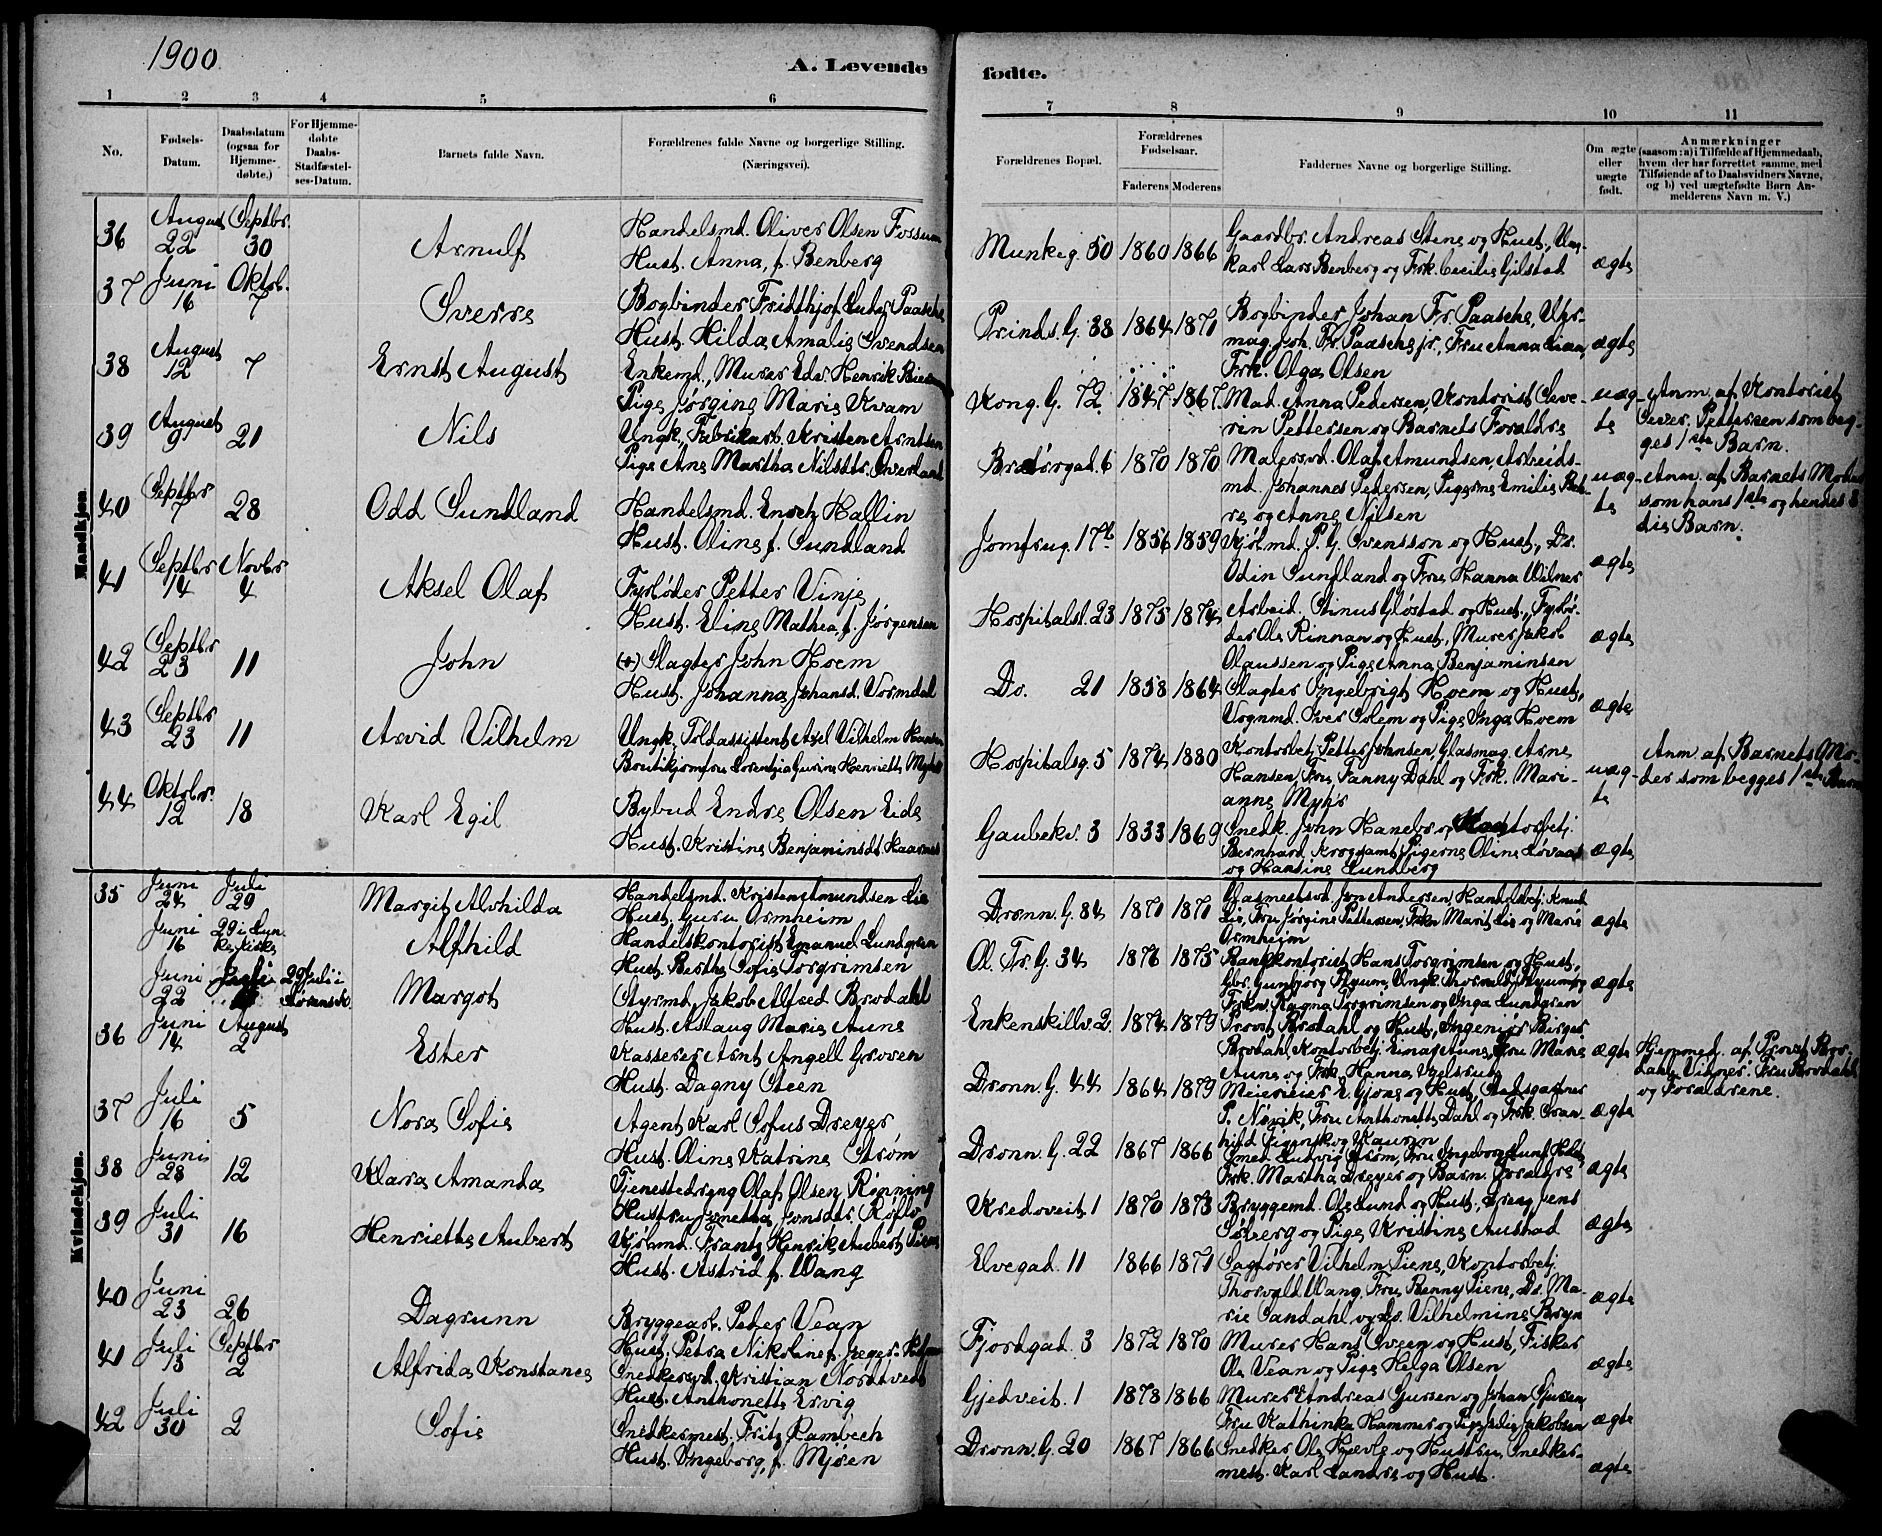 1900
A. Levende
fødte.
1 2 3 4 5 6
No.
Fødsels-Datum.
Daabsdatum (ogsaa for Hjemme-døbte.)
For Hjemme-døbte Daabs-Stadfæstel-ses-Datum.
Barnets fulde Navn.
Forældrenes fulde Navne og borgerlige Stilling.
(Næringsvei).
7 8 9 10 11
Forældrenes Bopæl.
Forældrenes Fødselsaar.
Faderens Moderens
Faddernes Navne og borgerlige Stilling.
Om ægte eller uægte født.
Anmærkninger
(saasom: a) i Tilfælde af Hjemmedaab, hvem der har forrettet samme, med Tilføiende af to Daabsvidners Navne, og b) ved uægtefødte Børn Anmelderens Navn m. V.)
Mandkjøn.
36 August 22 Septbr. 30 Arnulf
Handelsmd. Oliver Olsen Fossum
Hust. Anna, f. Benberg
Munkeg. 50 1860 1866
Gaardbr. Andreas Stene og Hust., Ung-
karl Lars Benberg og Frk. Cecilie Gilstad
ægte
37 Juni 16 Oktbr. 7 Sverre
Bogbinder Fridthjof Ludv. Paasche
Hust. Hilda Amalie Svendsen
Prinds. G. 38 1864 1871
Bogbinder Johan Fr. Paasche, Uhr-
mag. Joh. Fr. Paasche jr., Fru Anna
Frk. Olga Olsen
ægte
38 August 12 7 Ernst August
Enkemd., Murer Edv. Henrik
Pige Jørgine Marie Kvam
Kong. G. 72 1847 1867
Mad. Anna Pedersen, Kontorist Seve-
rin Pettersen og Barnets Forældre
uæg-
te
Anm. af Kontorist
Sever. Pettersen som beg-
ges 1ste Barn.
39 August 9 21 Nils
Ungk., Fabrikarb. Kristen Arntsen
Pige Ane Martha Nilsdtr. Overland
Bratørgad. 6 1870 1870
Malersvd. Olaf Amundsen, Arbeids-
md. Johannes Pedersen, Pigerne Emilie
re og Anne Nilsen
uæg-
te
Anm. af Barnets Moder
som hans 1ste og hendes 3
die Barn.
40 Septbr 7 28 Odd Sundland
Handelsmd. Enoch Hallin
Hust. Oline f. Sundland
Jomfrug. 17b 1856 1859
Kjølmd. P. G. Svensson og Hust., Do.
Odin Sundland og Fru Hanna Wilner
ægte
41 Septbr 14 Novbr 4 Aksel Olaf
Fyrbøder Petter Vinje
Hust. Eline Mathea, f. Jørgensen
Hospitalsl. 23 1875 1874
Arbeid. Stinus Gløstad og Hust., Fyrbø-
der Ole Rinnan og Hust., Murer Jakob
Olaussen og Pige Anna Benjaminsen
ægte
42 Septbr 23 11 John
(+) Slagter John Hoem
Hust. Johanna Johansd. Vormdal
Do. 21 1858 1864
Slagter Ingebrigt Hoem og Hust.,
Vognmd. Iver Solem og Pige Inga Hoem
ægte
43 Septbr 23 11 Arvid Vilhelm
Ungk. Toldassistent Axel Vilhelm Hansen
Boutikjomfru Lorentzia Gurine Henriette
Hospitalsg. 5 1874 1880
Kontorbetj. Petter Johnsen, Glasmag. Arne
Hansen, Fru Fanny Dahl og Frk. Mari-
anne Myhr
uæg-
te
Anm. af Barnets Mo-
der som begges 1ste Barn
44 Oktobr. 12 18 Karl Egil
Bybud Endre Olsen Eide
Hust. Kristine Benjaminsdt. Haarnes
Gaubekv. 3 1833 1869
Snedk. John Hanebo og Kontorbetj.
Bernhard Krogdamt, Pigerne Oline Løvaas
og Hansine Lundberg
ægte
Kvindekjøn.
35 Juni 24 Juli 29 Margit Alvhilda
Handelsmd. Kristen Amundsen Lie
Hust. Guru Ormheim
Dronn. G. 84 1870 1870
Glasmestsvd. Jon Andersen, Handelsbetj. Knud
Lie, Fru Jørgine Pettersen, Frkn Marit Lie og Marie
Ormheim
ægte
Juni 16 29 i Fru-
kirke Alfhild
Handelskontorist Emanuel Lundgren
Hust. Berthe Sofie Torgrimsen
Ol. Tr. G. 34 1876 1875
Bankkontorist Hans Torgrimsen og Hust.,
Gbr. Gunbjørg Thyum, Ungk. Thorvald Thyum og
Frkne Ragna Torgrimsen og Inga Lundgren
ægte
Juni 22 29 Juli i
Margot
Styrmd. Jakob Alfred Brodahl
Hust. Aslaug Marie Aune
Enkenskillv. 2 1874 1879
Provst Brodahl og Hust., Ingeniør Birger
Brodahl, Kontorbetj. Einar Aune, Fru Marie
Aune og Frk. Hanna Ugelsrud
ægte
Hjemmed. af Provst Bro-
dahl, Vidner: Fru Brodahl
og Forældrene.
36 Juni 14 August 2 Ester
Kasserer Arnt Angell Groven
Hust. Dagny Steen
Dronn. G. 44 1864 1879
Meierieier E. Gjone og Hust., Stadsgartner
P. Nøvik, Fru Anthonette Dahl og Frk.
ægte
37 Juli 16 5 Nora Sofie
Agent Karl Sofus Dreyer
Hust. Oline Katrine Strøm
Dronn. G. 22 1867 1866
Smed Ludvig Strøm, Fru Ingeborg
Frk. Martha Dreyer og Barn. Forældre
ægte
38 Juni 28 12 Klara Amanda
Tjenestedreng Olaf Olsen Rønning
Hustru Jonetta Jonsdtr.
Kredoveit. 1 1870 1873
Bryggemd. Ole Lund og Hust., Dreng Jens
Solberg og Pige Kristine Austad
ægte
39 Juli 31 16 Henriette Aubert
Kjølmd. Frantz Henrik Aubert Piene
Hust. Astrid f. Wang
Elvegad. 11 1866 1871
Sagfører Vilhelm Piene, Kontorbetj.
Thorvald Wang, Fru Benny Piene, Do. Ma-
rie Sandahl og Do. Vilhelmine Bryn
ægte
40 Juni 23 26 Dagrunn
Bryggearb. Peder Vean
Hust. Petra Nikoline f.
Fjordgad. 3 1872 1870
Murer Hans Sveen og Hust., Fisker
Ole Vean og Pige Helga Olsen
ægte
41 Juli 13 Septbr 2 Alfrida Konstance
Snedkersvd. Kristian Nordtvedt
Hust. Anthonette Ervig
Gjedveit. 1 1873 1866
Murer Andreas Gjersen og Johan Gjersen,
Fru Kathinka Hammer og Pige Julie Jakobsen
ægte
42 Juli 30 2 Sofie
Snedkermest. Fritz Rambech
Hust. Ingeborg, f. Mjøen
Dronn. G. 20 1867 1866
Snedker Ole Hjevle og Hustru, Snedker-
mest. Karl Landrø og Hust.
ægte